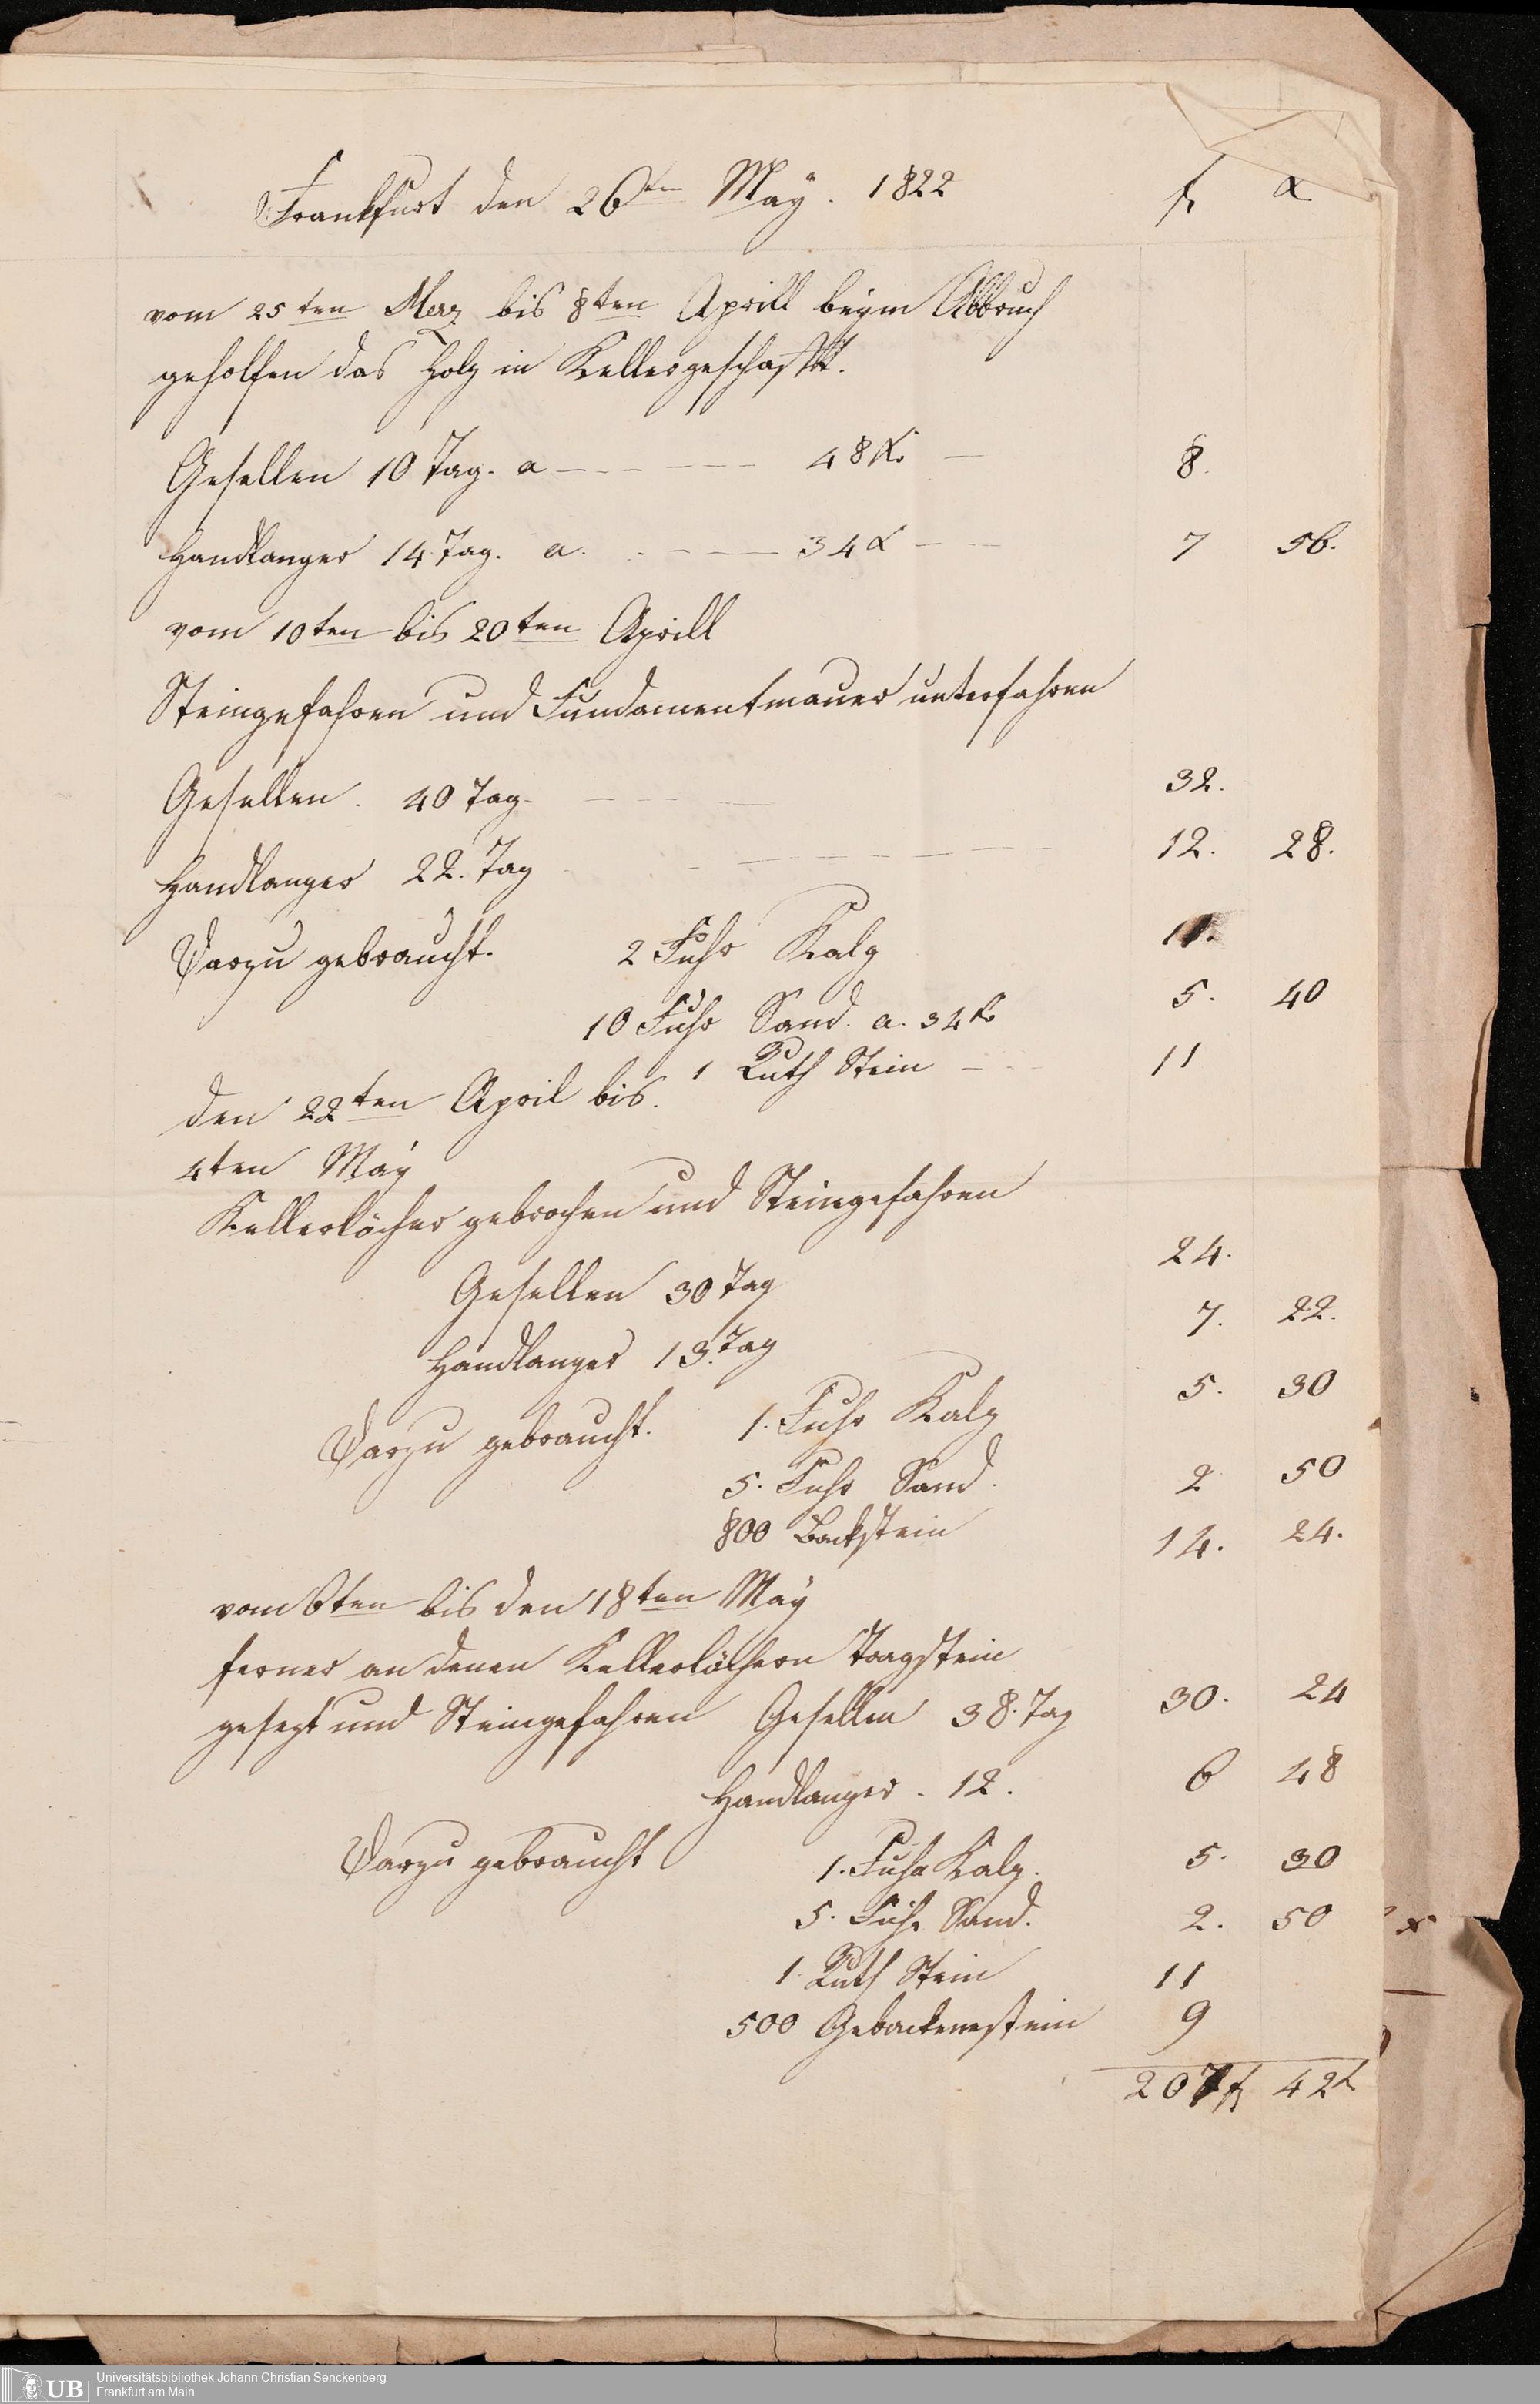 Frankfurt den 26ten May. 1822 f x
vom 25ten Merz bis 8ten Aprill beym Abbruch
geholfen das Holz in Keller geschafft.
Gesellen 10 Tag. a 48 x. 8.
Handlanger 14 Tag. a. 34 x 7 56.
vom 10ten bis 20ten Aprill
Steingefahren und Fundamentmauer unterfahren
Gesellen. 40 Tag 32.
Handlanger 22. Tag 12. 28.
Darzu gebraucht. 2 Fuhr Kalg 11.
10 Fuhr Sand. a. 34 x 5. 40
1 Ruth Stein 11
den 22ten April bis.
4ten May
Kellerlöcher gebrochen und Steingefahren
Gesellen 30 Tag 24.
Handlanger 13. Tag 7. 22.
Darzu gebraucht. 1. Fuhr Kalg 5. 30
5. Fuhr Sand. 2 50
800 Backstein 14. 24.
vom 6ten bis den 18ten May
ferner an denen Kellerlöchern Tragstein
gesezt und Steingefahren Gesellen 38. Tag 30. 24
Handlanger. 12. 6 48
Darzu gebraucht 1. Fuhr Kalg. 5. 30
5. Fuhr Sand. 2. 50
1. Ruth Stein 11
500 Gebackenestein 9
207 f 42 x
UB
Universitätsbibliothek Johann Christian Senckenberg
Frankfurt am Main